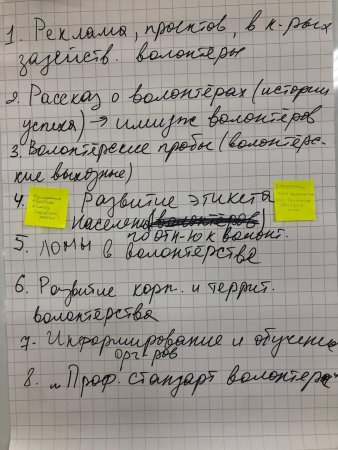 1. Реклама, проектов, в к-рых
задейств. волонтёры
2. Рассказ о волонтёрах (истории
успеха) → имидж волонтёров
3. Волонтёрские пробы (волонтёрс-
кие выходные)
4. Развитие этикета
населен
по отн-ю к волонт.
5. ЛОМы в волонтёрства
6. Развитие корп. и террит.
волонтёрства
7. Информирование и обучение
орг-ров
8. „Проф. стандарт волонтёра"